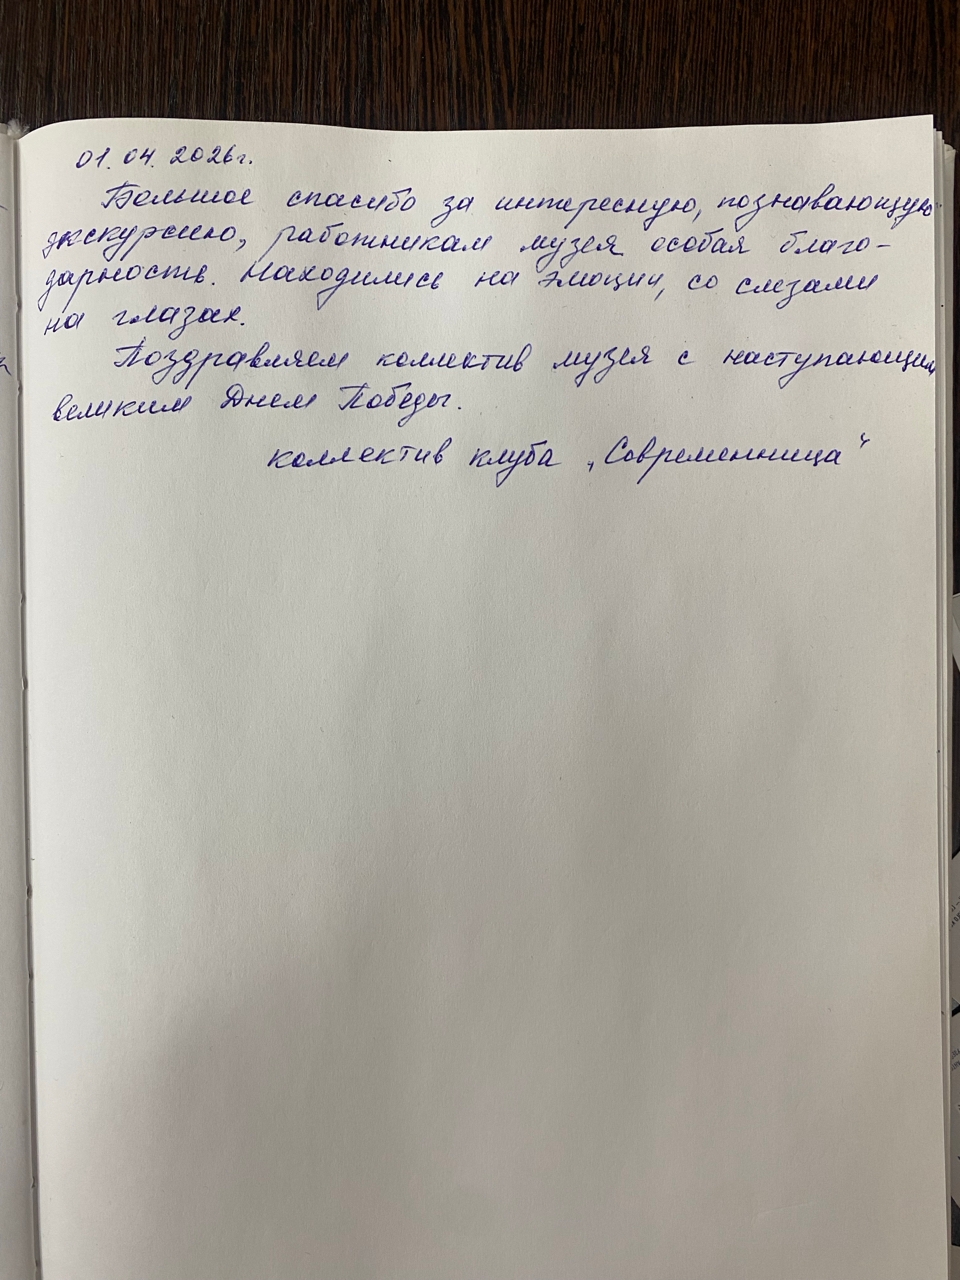 01.04.2026г.
Большое спасибо за интересную, познавающую
экскурсию, работникам музея особая благо-
дарность. Находились на эмоции, со слезами
на глазах.
Поздравляем коллектив музея с наступающим
великим Днем Победы.
коллектив клуба „Современница“